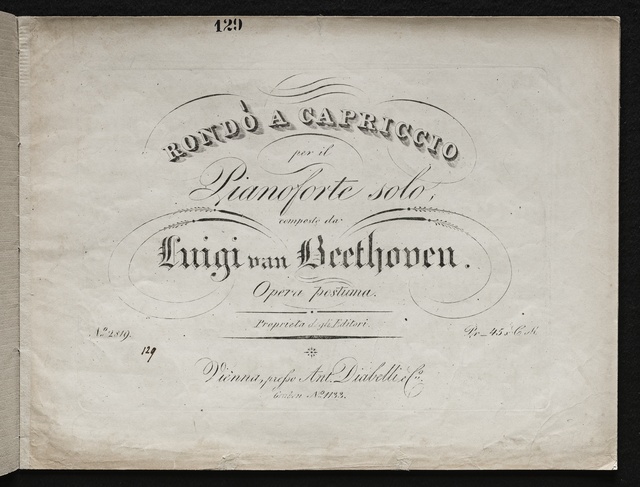 129
RONDÒ A CAPRICCIO
per il
Pianoforte solo,
composto da
Luigi van Beethoven.
Opera postuma.
Proprietà degli Editori.
No. 2819. Pr. 45 x C. M.
129
Vienna, presso Ant. Diabelli e Co.
Graben No. 1133.